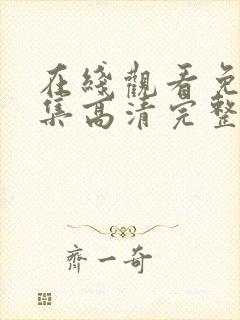 在綫觀看免
集高清完整
齊一奇